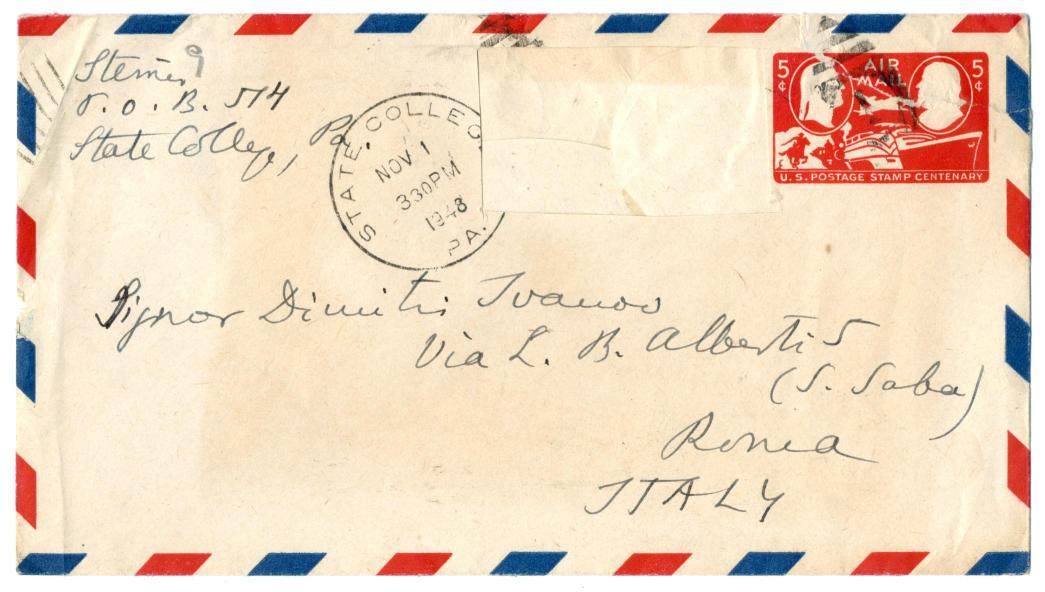 P.O.B. 574
State College, Pa.
STATE COLLEGE
NOV 1
330PM
1948
PA.
5¢ AIR MAIL 5¢
U.S. POSTAGE STAMP CENTENARY
Signor Dimitri Ivanov
Via L. B. Alberti 5
(S. Saba)
Roma
ITALY